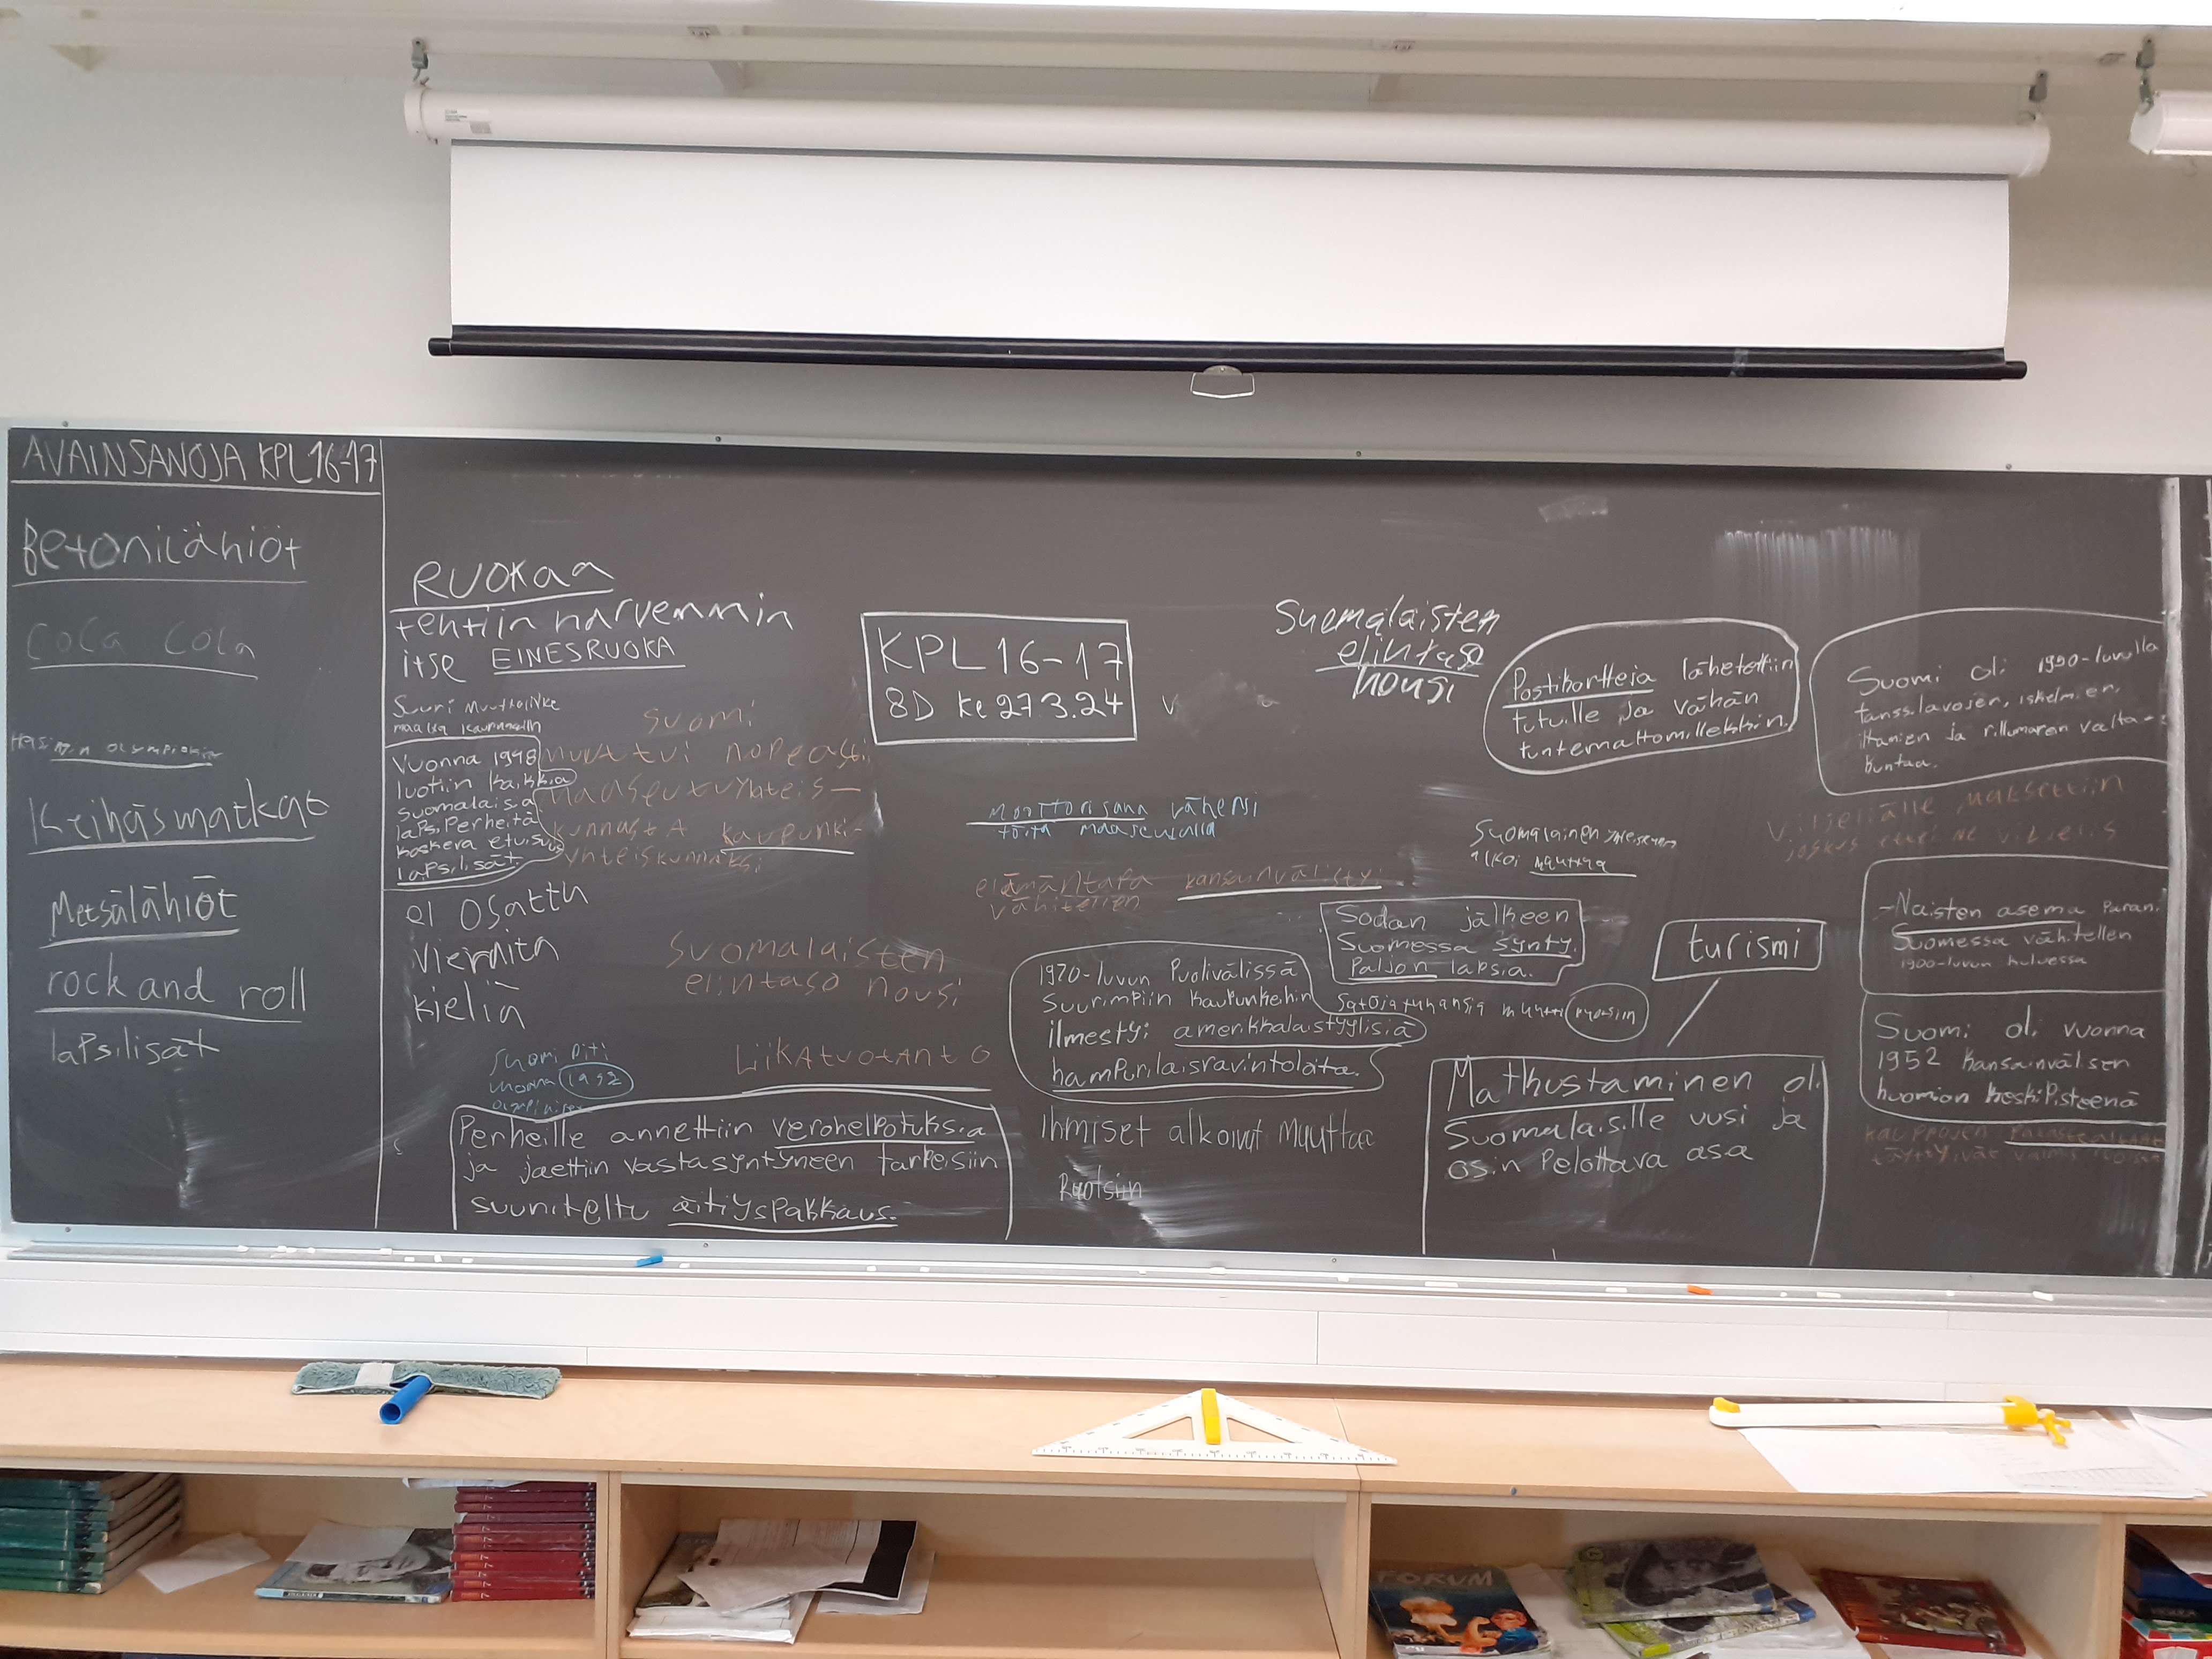 AVAINSANOJA KPL 16-17
Betonilähiöt
Coca Cola
Keihäsmatkat
Metsälähiöt
rock and roll
lapsilisät
RUOKAA
tehtiin harvemmin
itse EINESRUOKA
Suuri muuttoliike
Vuonna 1948
luotiin kaikkia
suomalaisia
lapsiperheitä
koskeva etuisuus
lapsilisät.
Suomi
muuttui nopeasti
maaseutuyhteis-
kunnastA kaupunki-
yhteiskunnaksi
ei osattu
Vierdita
kieliä
Suomalaisten
elintaso nousi
Suomi piti
vuonna 1952
LiikAtuotAntO
Perheille annettiin verohelpotuksia
ja jaettiin vastasyntyneen tarpeisiin
suuniteltu äitiyspakkaus.
KPL 16-17
8D ke 27.3.24
v
Moottorisaha vähensi
töitä maaseudulla
elämäntapa kansainvälistyi
vähitellen
1970-luvun Puolivälissä
Suurimpiin kaupunkeihin
ilmestyi amerikkalaistyylisiä
hampurilaisravintoloita.
Ihmiset alkoivat Muuttaa
Ruotsiin
Suomalaisten
elintaso
nousi
Postikortteja lähetettiin
tutuille ja vähän
tuntemattomillekkin.
Suomalainen
alkoi muuttua
Sodan jälkeen
Suomessa synty
Paljon lapsia.
Satoja tuhansia muutti ruotsiin
turismi
Matkustaminen oli
Suomalaisille uusi ja
osin Pelottava asa
Suomi oli 1950-luvulla
tanssilavojen, iskelmien,
iltamien ja rillumarein valta-
kuntaa.
Viljeliälle maksettiin
joskus ettei ne viljelis
-Naisten asema parani
Suomessa vähitellen
1900-luvun kuluessa
Suomi oli vuonna
1952 kansainvälisen
huomion keskipisteenä
kauppojen
FORUM